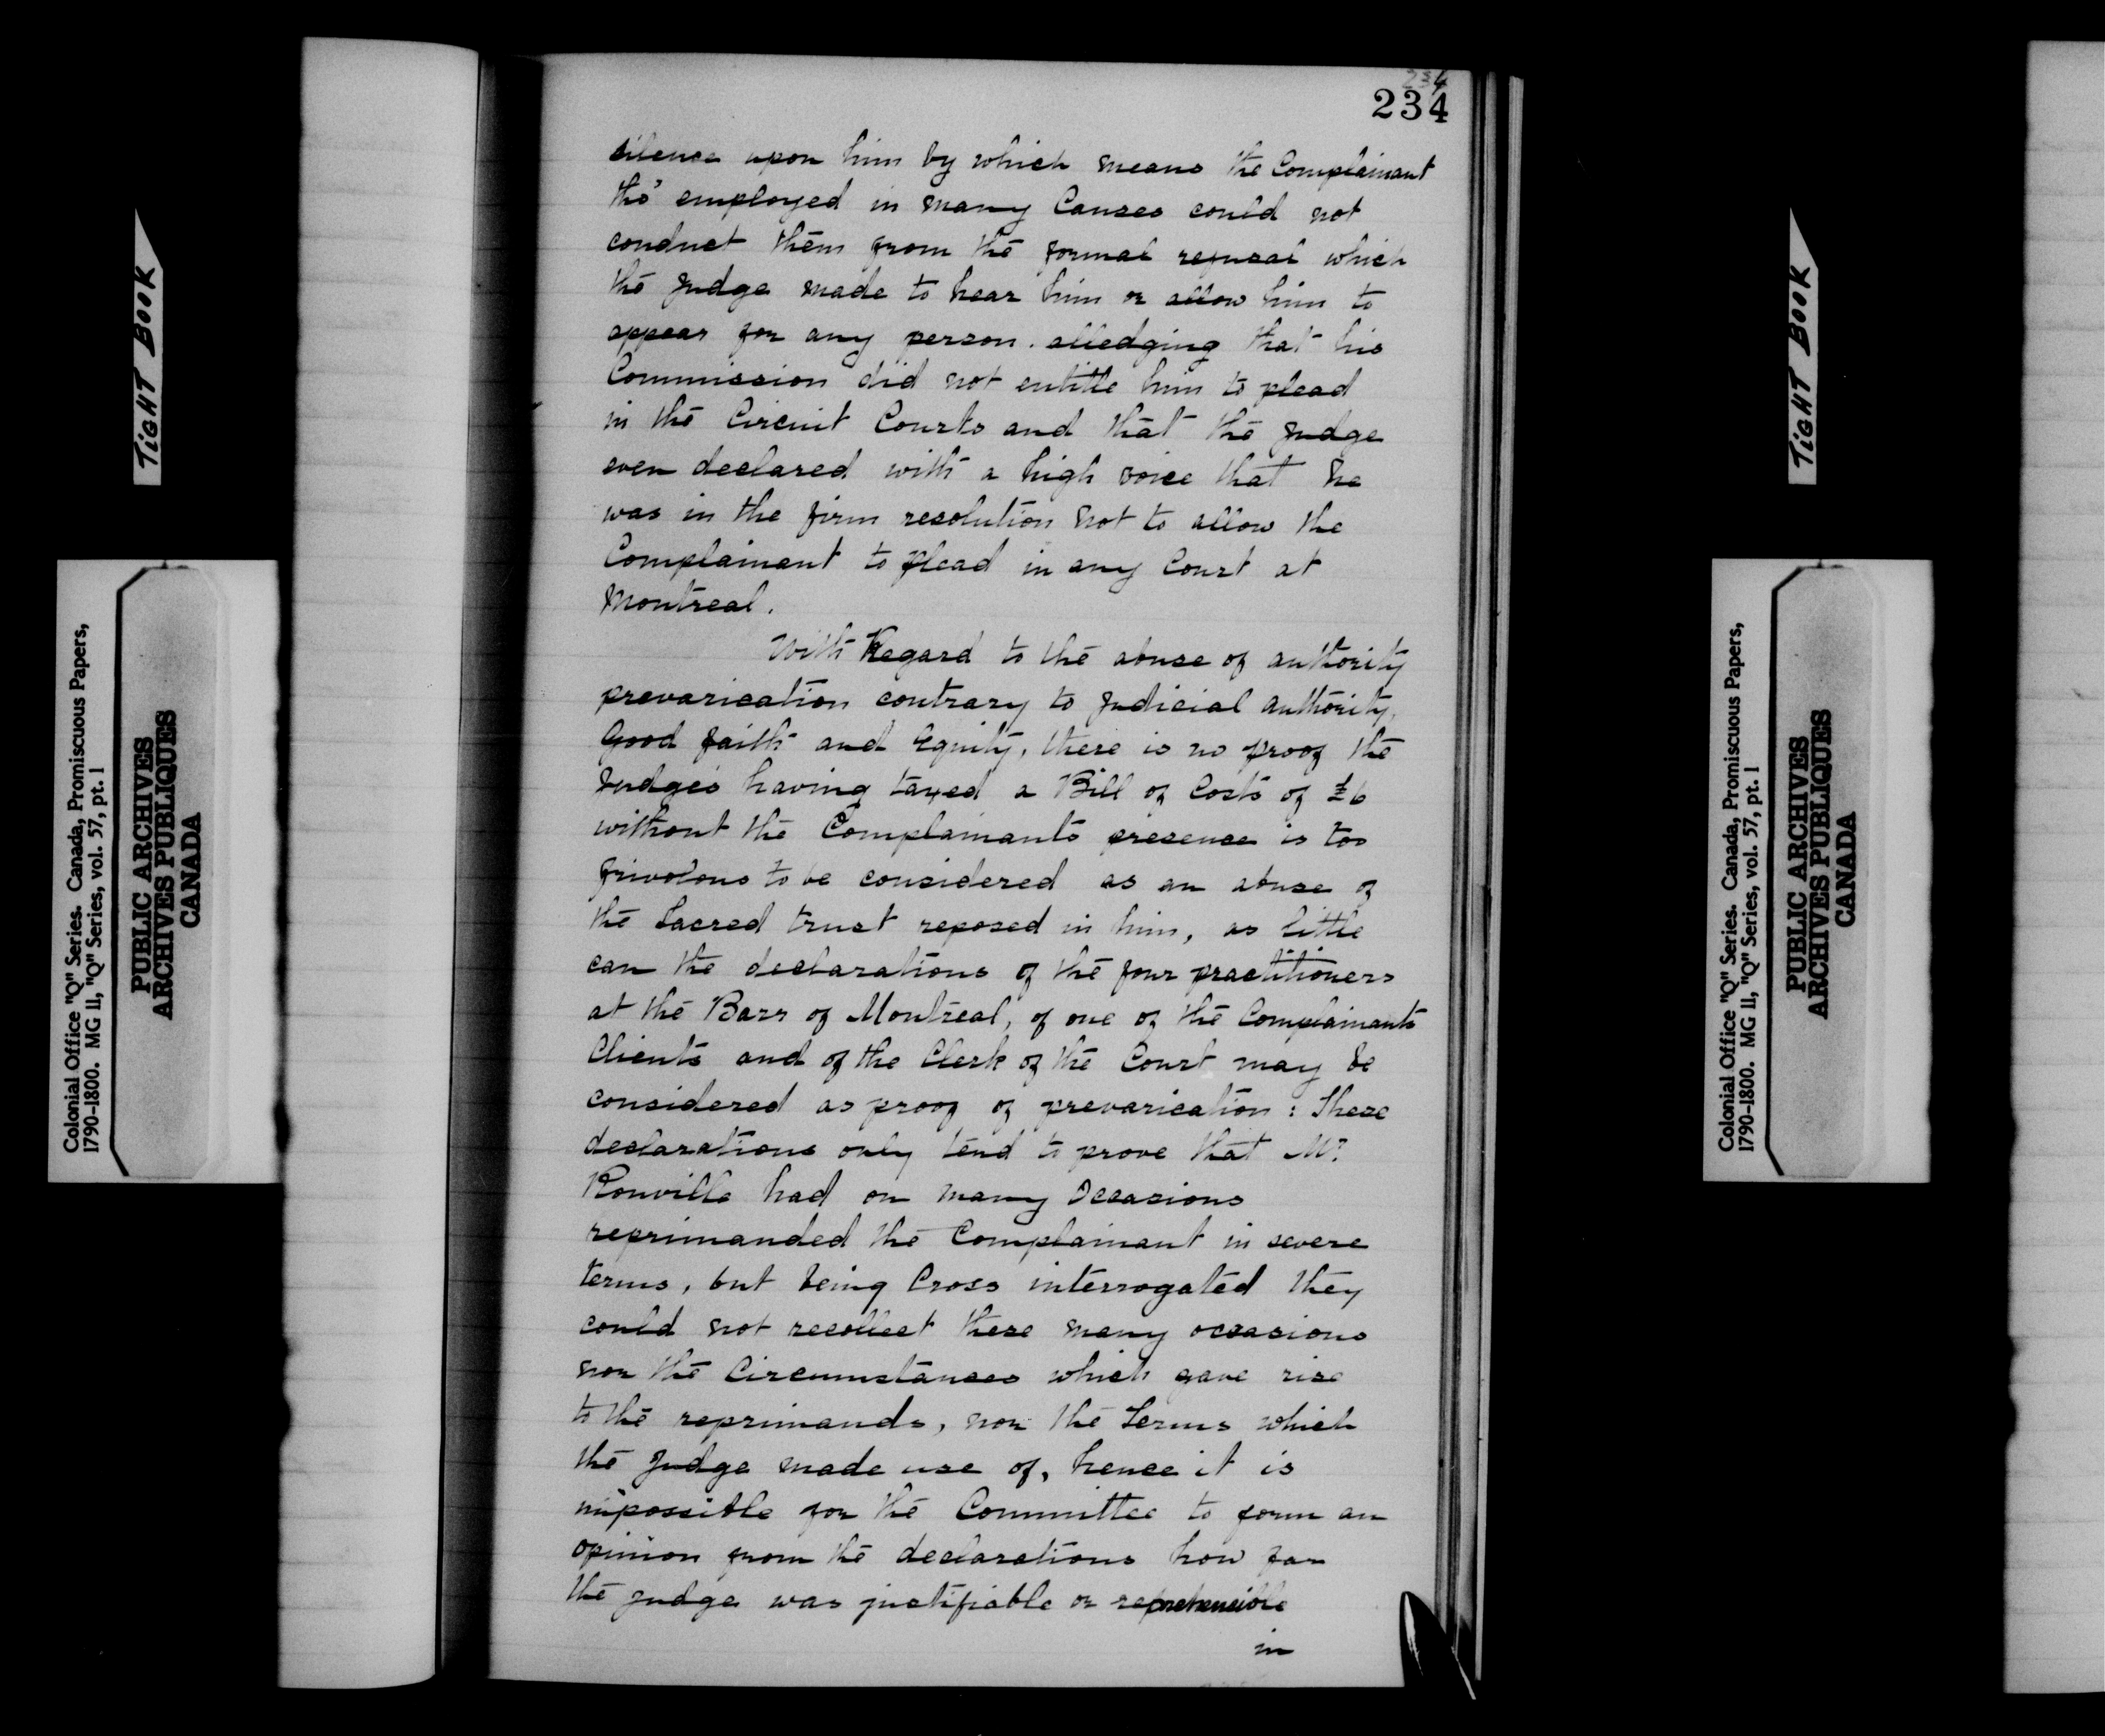 234
234
silence upon him by which means the Complainant
tho' employed in many Causes could not
conduct them from the formal refusal which
the Judge made to hear him or allow him to
appear for any person. alledging that his
Commission did not entitle him to plead
in the Circuit Courts and that the Judge
even declared with a high voice that he
was in the firm resolution not to allow the
Complainant to plead in any Court at
Montreal.
With Regard to the abuse of authority
prevarication contrary to Judicial authority,
Good faith and Equity, there is no proof the
Judge's having taxed a Bill of Costs of £6
without the Complainants presence is too
frivolous to be considered as an abuse of
the Sacred trust reposed in him, as little
can the declarations of the four practitioners
at the Barr of Montreal, of one of the Complainants
Clients and of the Clerk of the Court may be
considered as proof of prevarication: These
declarations only tend to prove that Mr.
Rouville had on many Occasions
reprimanded the Complainant in severe
terms, but being Cross interrogated they
could not recollect these many occasions
nor the Circumstances which gave rise
to the reprimands, nor the Terms which
the Judge made use of, hence it is
impossible for the Committee to form an
opinion from the declarations how far
the Judge was justifiable or reprehensible
in
TIGHT BOOK
Colonial Office "Q" Series. Canada, Promiscuous Papers,
1790-1800. MG 11, "Q" Series, vol. 57, pt. 1
PUBLIC ARCHIVES
ARCHIVES PUBLIQUES
CANADA
TIGHT BOOK
Colonial Office "Q" Series. Canada, Promiscuous Papers,
1790-1800. MG 11, "Q" Series, vol. 57, pt. 1
PUBLIC ARCHIVES
ARCHIVES PUBLIQUES
CANADA